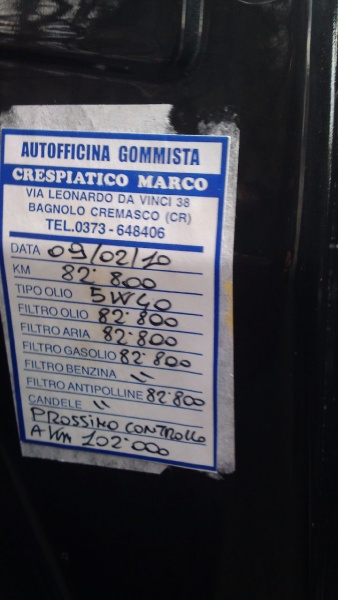 AUTOFFICINA GOMMISTA
CRESPIATICO MARCO
VIA LEONARDO DA VINCI 38
BAGNOLO CREMASCO (CR)
TEL.0373-648406
DATA 09/02/10
KM 82'800
TIPO OLIO 5W40
FILTRO OLIO 82'800
FILTRO ARIA 82'800
FILTRO GASOLIO 82'800
FILTRO BENZINA "
FILTRO ANTIPOLLINE 82'800
CANDELE "
PROSSIMO CONTROLLO
A Km 102'000